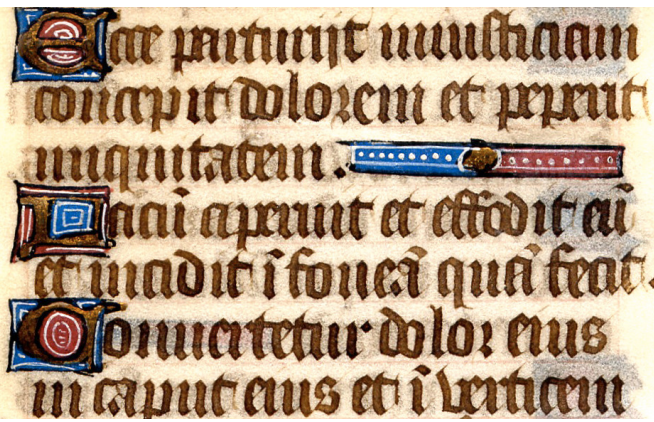 Ecce parturiit iniusticiam
concepit dolorem et peperit
iniquitatem.
Lacū aperuit et effodit eū
et incidit ī foueā quā fecit.
Conuertetur dolor eius
in caput eius et ī verticem